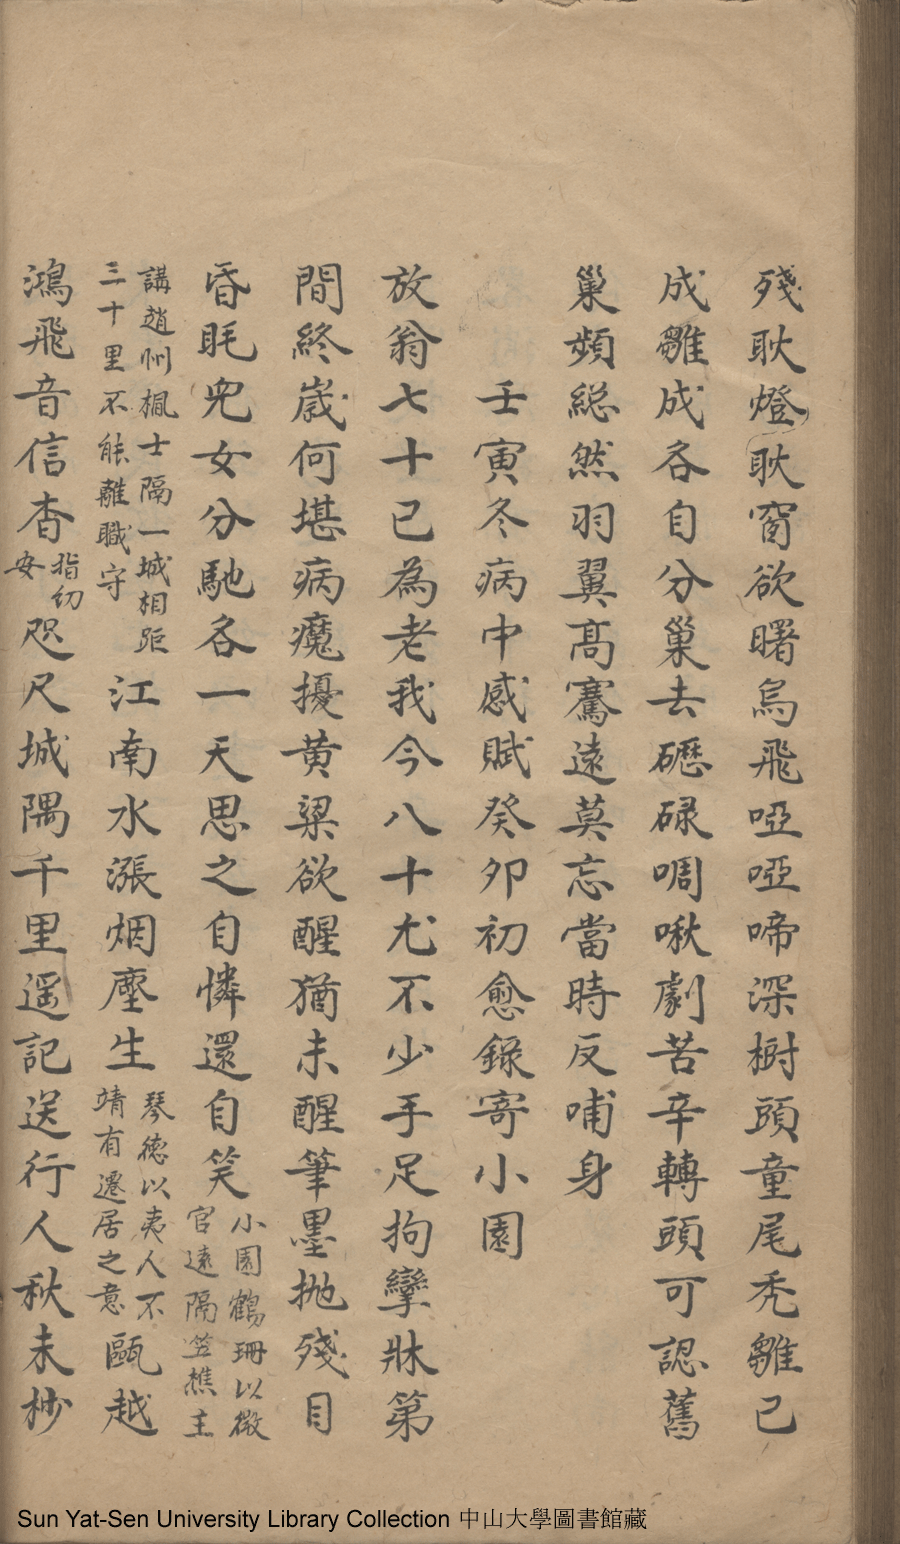 殘耿燈耿窗欲曙烏飛啞啞啼深樹頭童尾禿雛已
成雛成各自分巢去磿碌啁啾劇苦辛轉頭可認舊
巢頻総然羽翼高騫遠莫忘當時反哺身
壬寅冬病中感賦癸卯初愈錄寄小園
放翁七十已為老我今八十尤不少手足拘攣牀第
間終嵗何堪病魔擾黄梁欲醒猶未醒筆墨拋殘目
昏眊兒女分馳各一天思之自憐還自笑小園鶴珊以微官遠隔笠樵主
講趙州楓士隔一城相距三十里不能離職守江南水漲烟塵生琴德以夷人不靖有遷居之意甌越
鴻飛音信杳指幼安咫尺城隅千里遥記送行人秋未杪
Sun Yat-Sen University Library Collection 中山大學圖書館藏